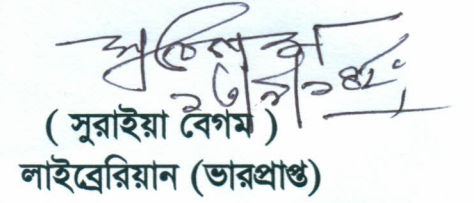 ( সুরাইয়া বেগম )
লাইব্রেরিয়ান (ভারপ্রাপ্ত)